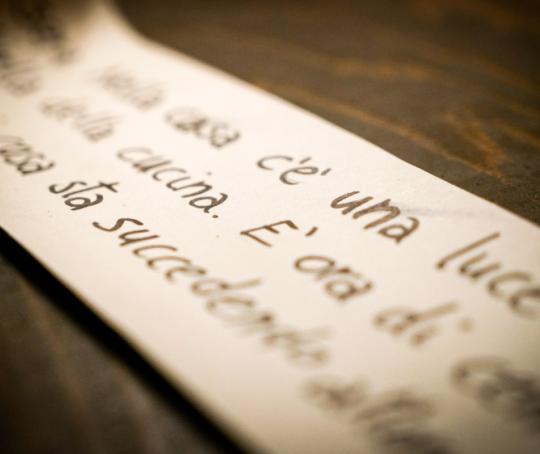 Nella casa c'è una luce
della cucina. E' ora di
cosa sta succedendo